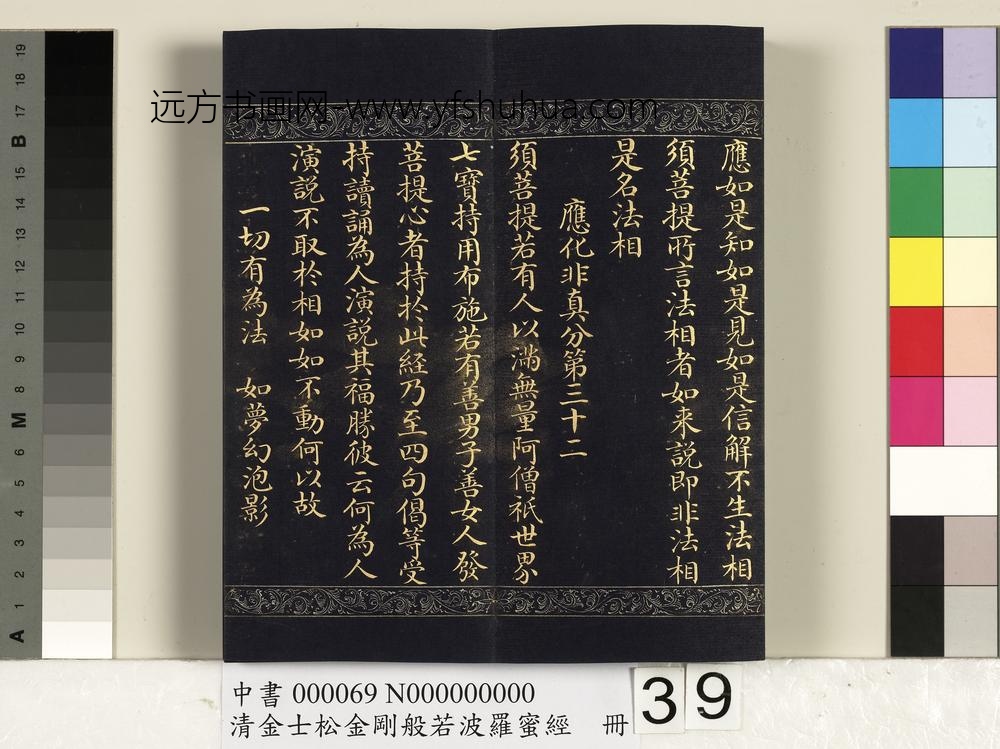 远方书画网 www.yfshuhua.com
應如是知如是見如是信解不生法相
須菩提所言法相者如来説即非法相
是名法相
應化非真分第三十二
須菩提若有人以滿無量阿僧祇世界
七寶持用布施若有善男子善女人發
菩提心者持扵此経乃至四句偈等受
持讀誦為人演説其福勝彼云何為人
演説不取扵相如如不動何以故
一切有為法 如夢幻泡影
中書 000069 N000000000
清金士松金剛般若波羅蜜經 冊
39
19
18
17
B
15
14
13
12
11
10
9
8
M
6
5
4
3
2
1
A